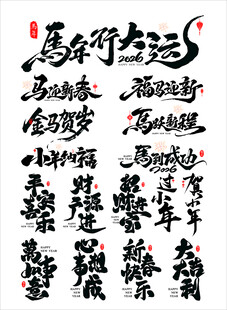 馬年
馬年行大运
2026
HAPPY NEW YEAR
马迎新春
福马迎新
金马贺岁
馬躍新程
小年纳福
馬到成功
2026
平安喜乐
财源广进
招财进宝
过小年
贺小年
HAPPY NEW YEAR
萬事如意
心想事成
新春快乐
大吉大利
HAPPY NEW YEAR
HAPPY NEW YEAR
HAPPY NEW YEAR